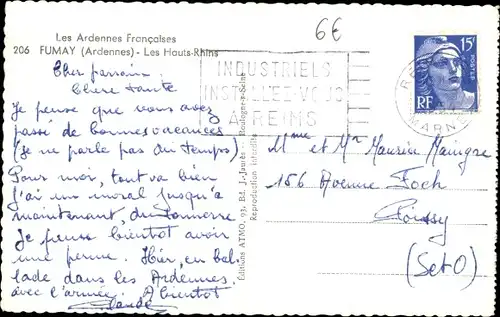 Les Ardennes Françaises
206 FUMAY (Ardennes) - Les Hauts-Rhins
6€
Cher parrain.
Chère tante
Je pense que vous avez
passé de bonnes vacances
(je ne parle pas du temps).
Pour moi, tout va bien
j'ai un moral jusqu'à
maintenant, du tonnerre
Je pense bientôt avoir
une perme. Hier, en bal-
lade dans les Ardennes
avec l'armée. A bientôt
Claude
Editions ATMO, 93, Bd. J.-Jaurès - Boulogne-s-Seine
Reproduction Interdite
INDUSTRIELS
INSTALLEZ-VOUS
A REIMS
MARNE
15f
POSTES
RF
Mme et Mr Maurice
156 Avenue Foch
(Set-O)